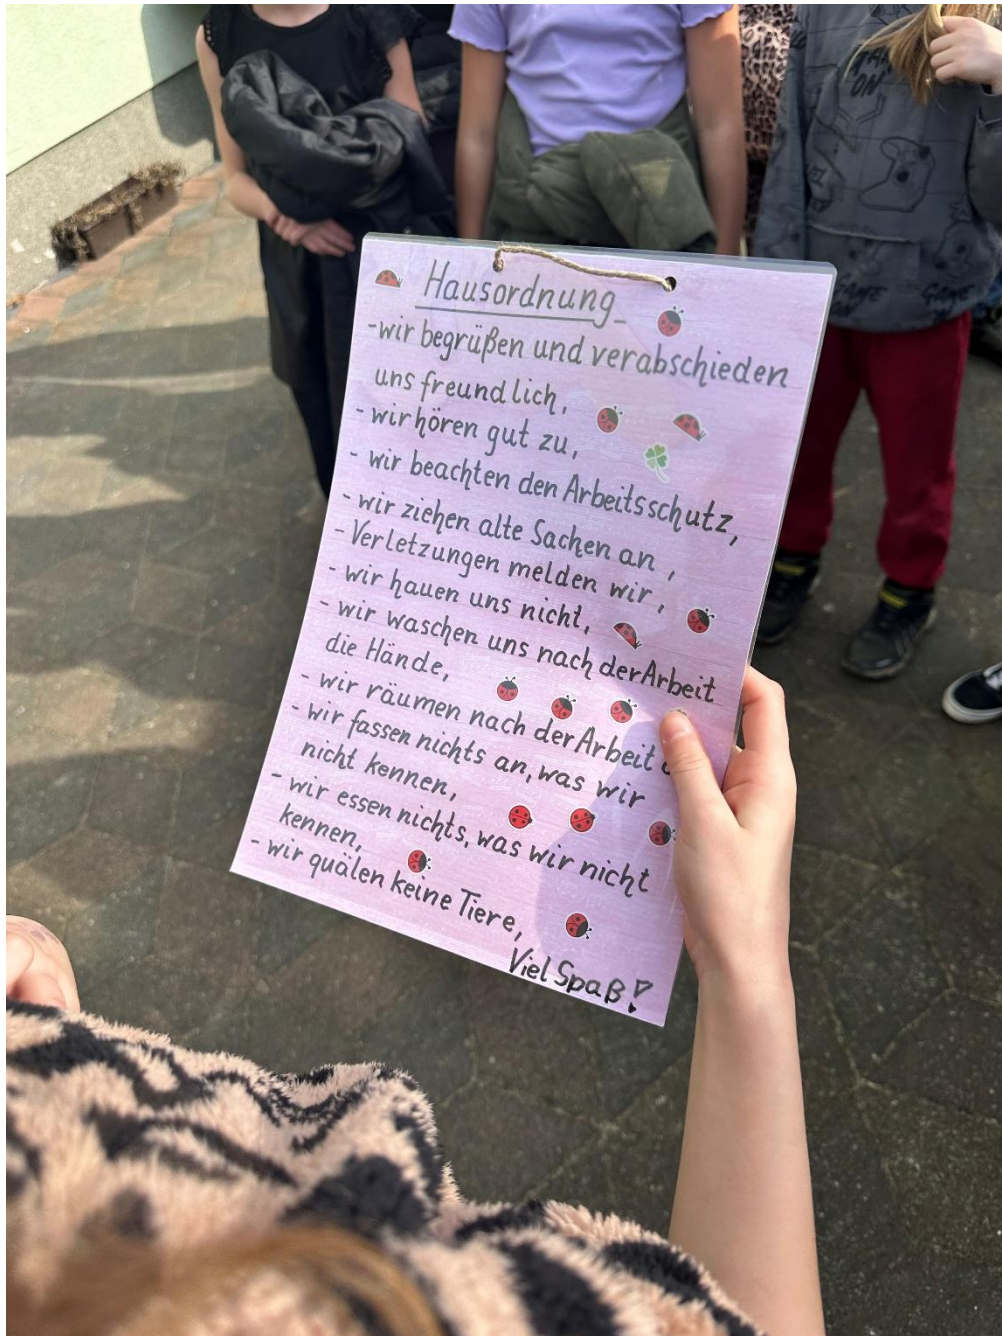 GAME ON
GAME
GAME
Hausordnung
- wir begrüßen und verabschieden
uns freundlich,
- wir hören gut zu,
- wir beachten den Arbeitsschutz,
- wir ziehen alte Sachen an,
- Verletzungen melden wir,
- wir hauen uns nicht,
- wir waschen uns nach der Arbeit
die Hände,
- wir räumen nach der Arbeit
- wir fassen nichts an, was wir
nicht kennen,
- wir essen nichts, was wir nicht
kennen,
- wir quälen keine Tiere,
Viel Spaß!